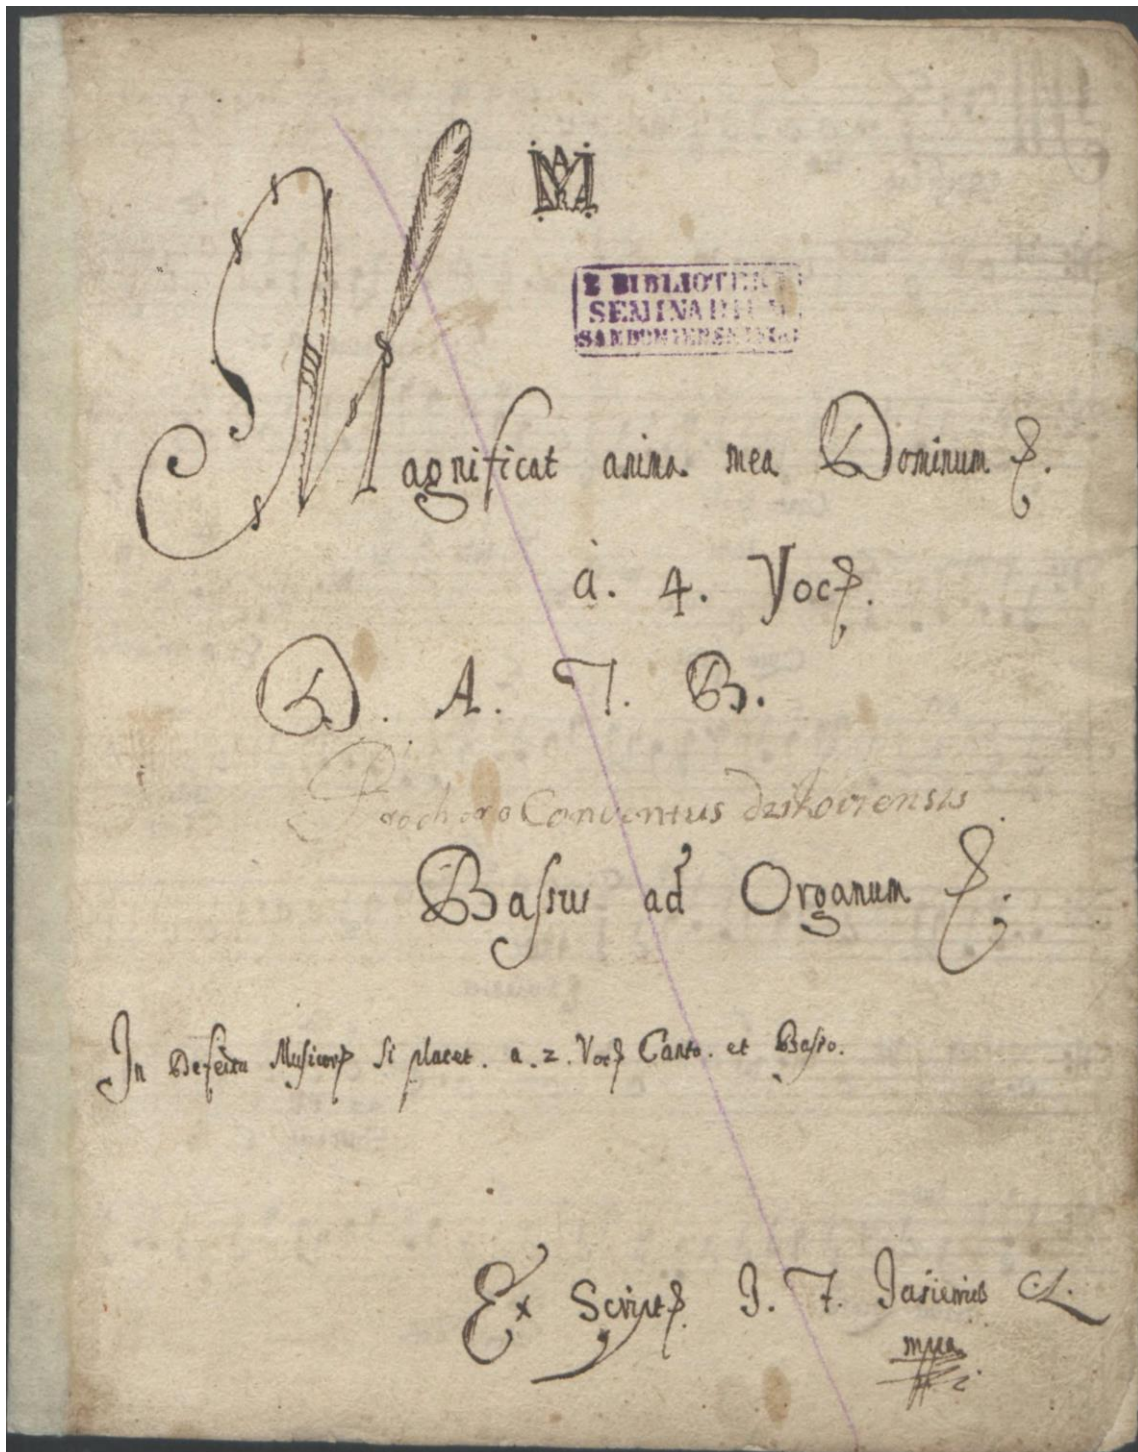 MARIA
Z BIBLIOTEKI
SEMINARIUM
SANDOMIERSKIEGO
Magnificat anima mea Dominum &.
à. 4. Voc.
D. A. T. B.
Pro choro Conventus
Bassus ad Organum &.
In Defectu Musicor si placet. a. 2. Voc Canto. et Basso.
Ex Script J. F.
mpa